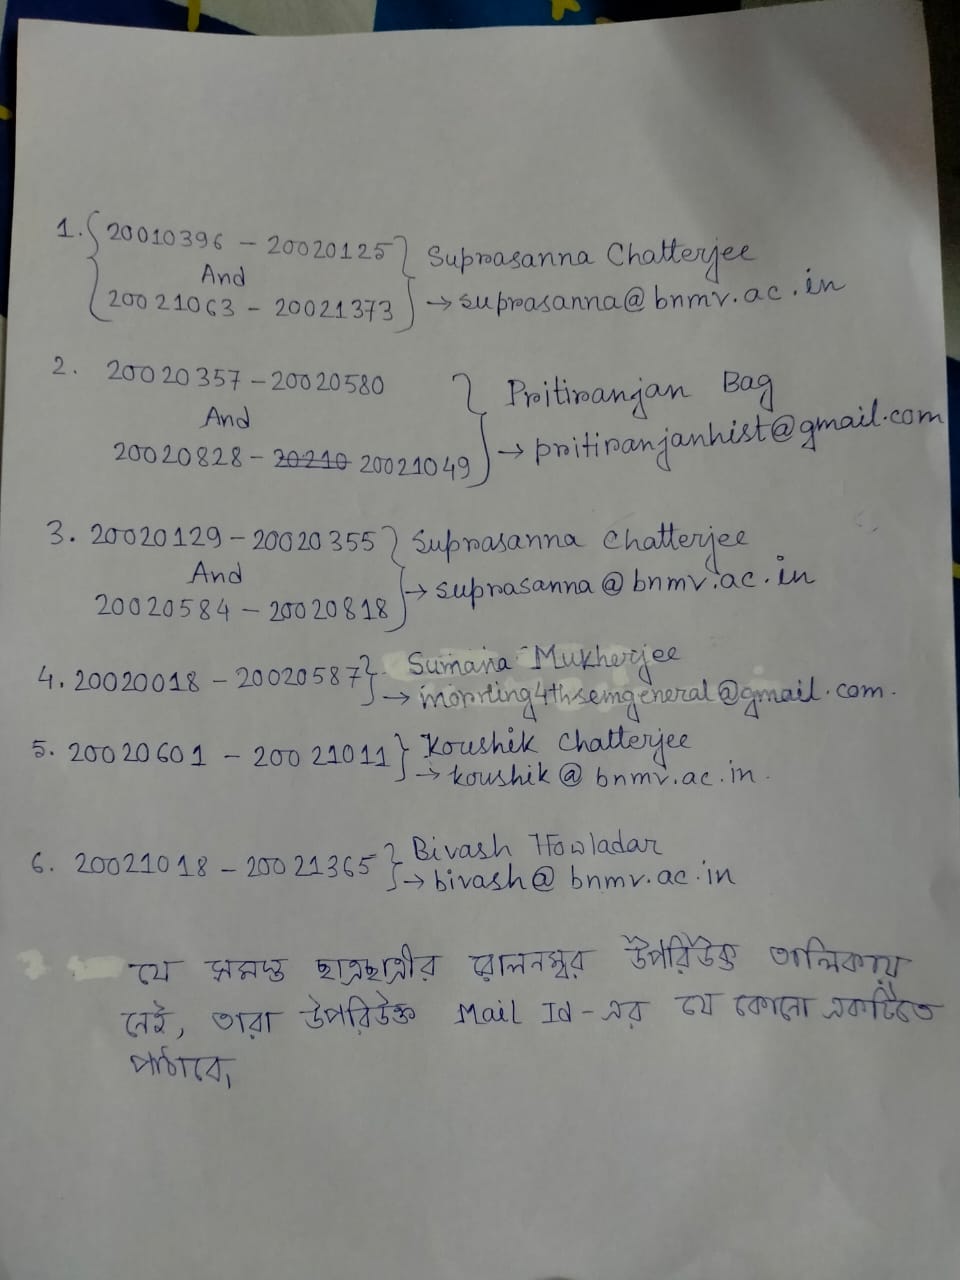 1. 20010396 - 20020125 Suprasanna Chatterjee
And
20021063 - 20021373 → suprasanna@bnmv.ac.in
2. 20020357 - 20020580 Pritiranjan Bag
And
20020828 - 20210 20021049 → pritiranjanhist@gmail.com
3. 20020129 - 20020355 Suprasanna Chatterjee
And
20020584 - 20020818 → suprasanna@bnmv.ac.in
4. 20020018 - 20020587 Sumana Mukherjee
→ morning4thsemgeneral@gmail.com.
5. 20020601 - 20021011 Koushik Chatterjee
→ koushik@bnmv.ac.in.
6. 20021018 - 20021365 Bivash Howladar
→ bivash@bnmv.ac.in
যে সমস্ত ছাত্রছাত্রীর রোলনম্বর উপরিউক্ত তালিকায়
নেই, তারা উপরিউক্ত Mail Id-এর যে কোনো একটিতে
পাঠাবে,